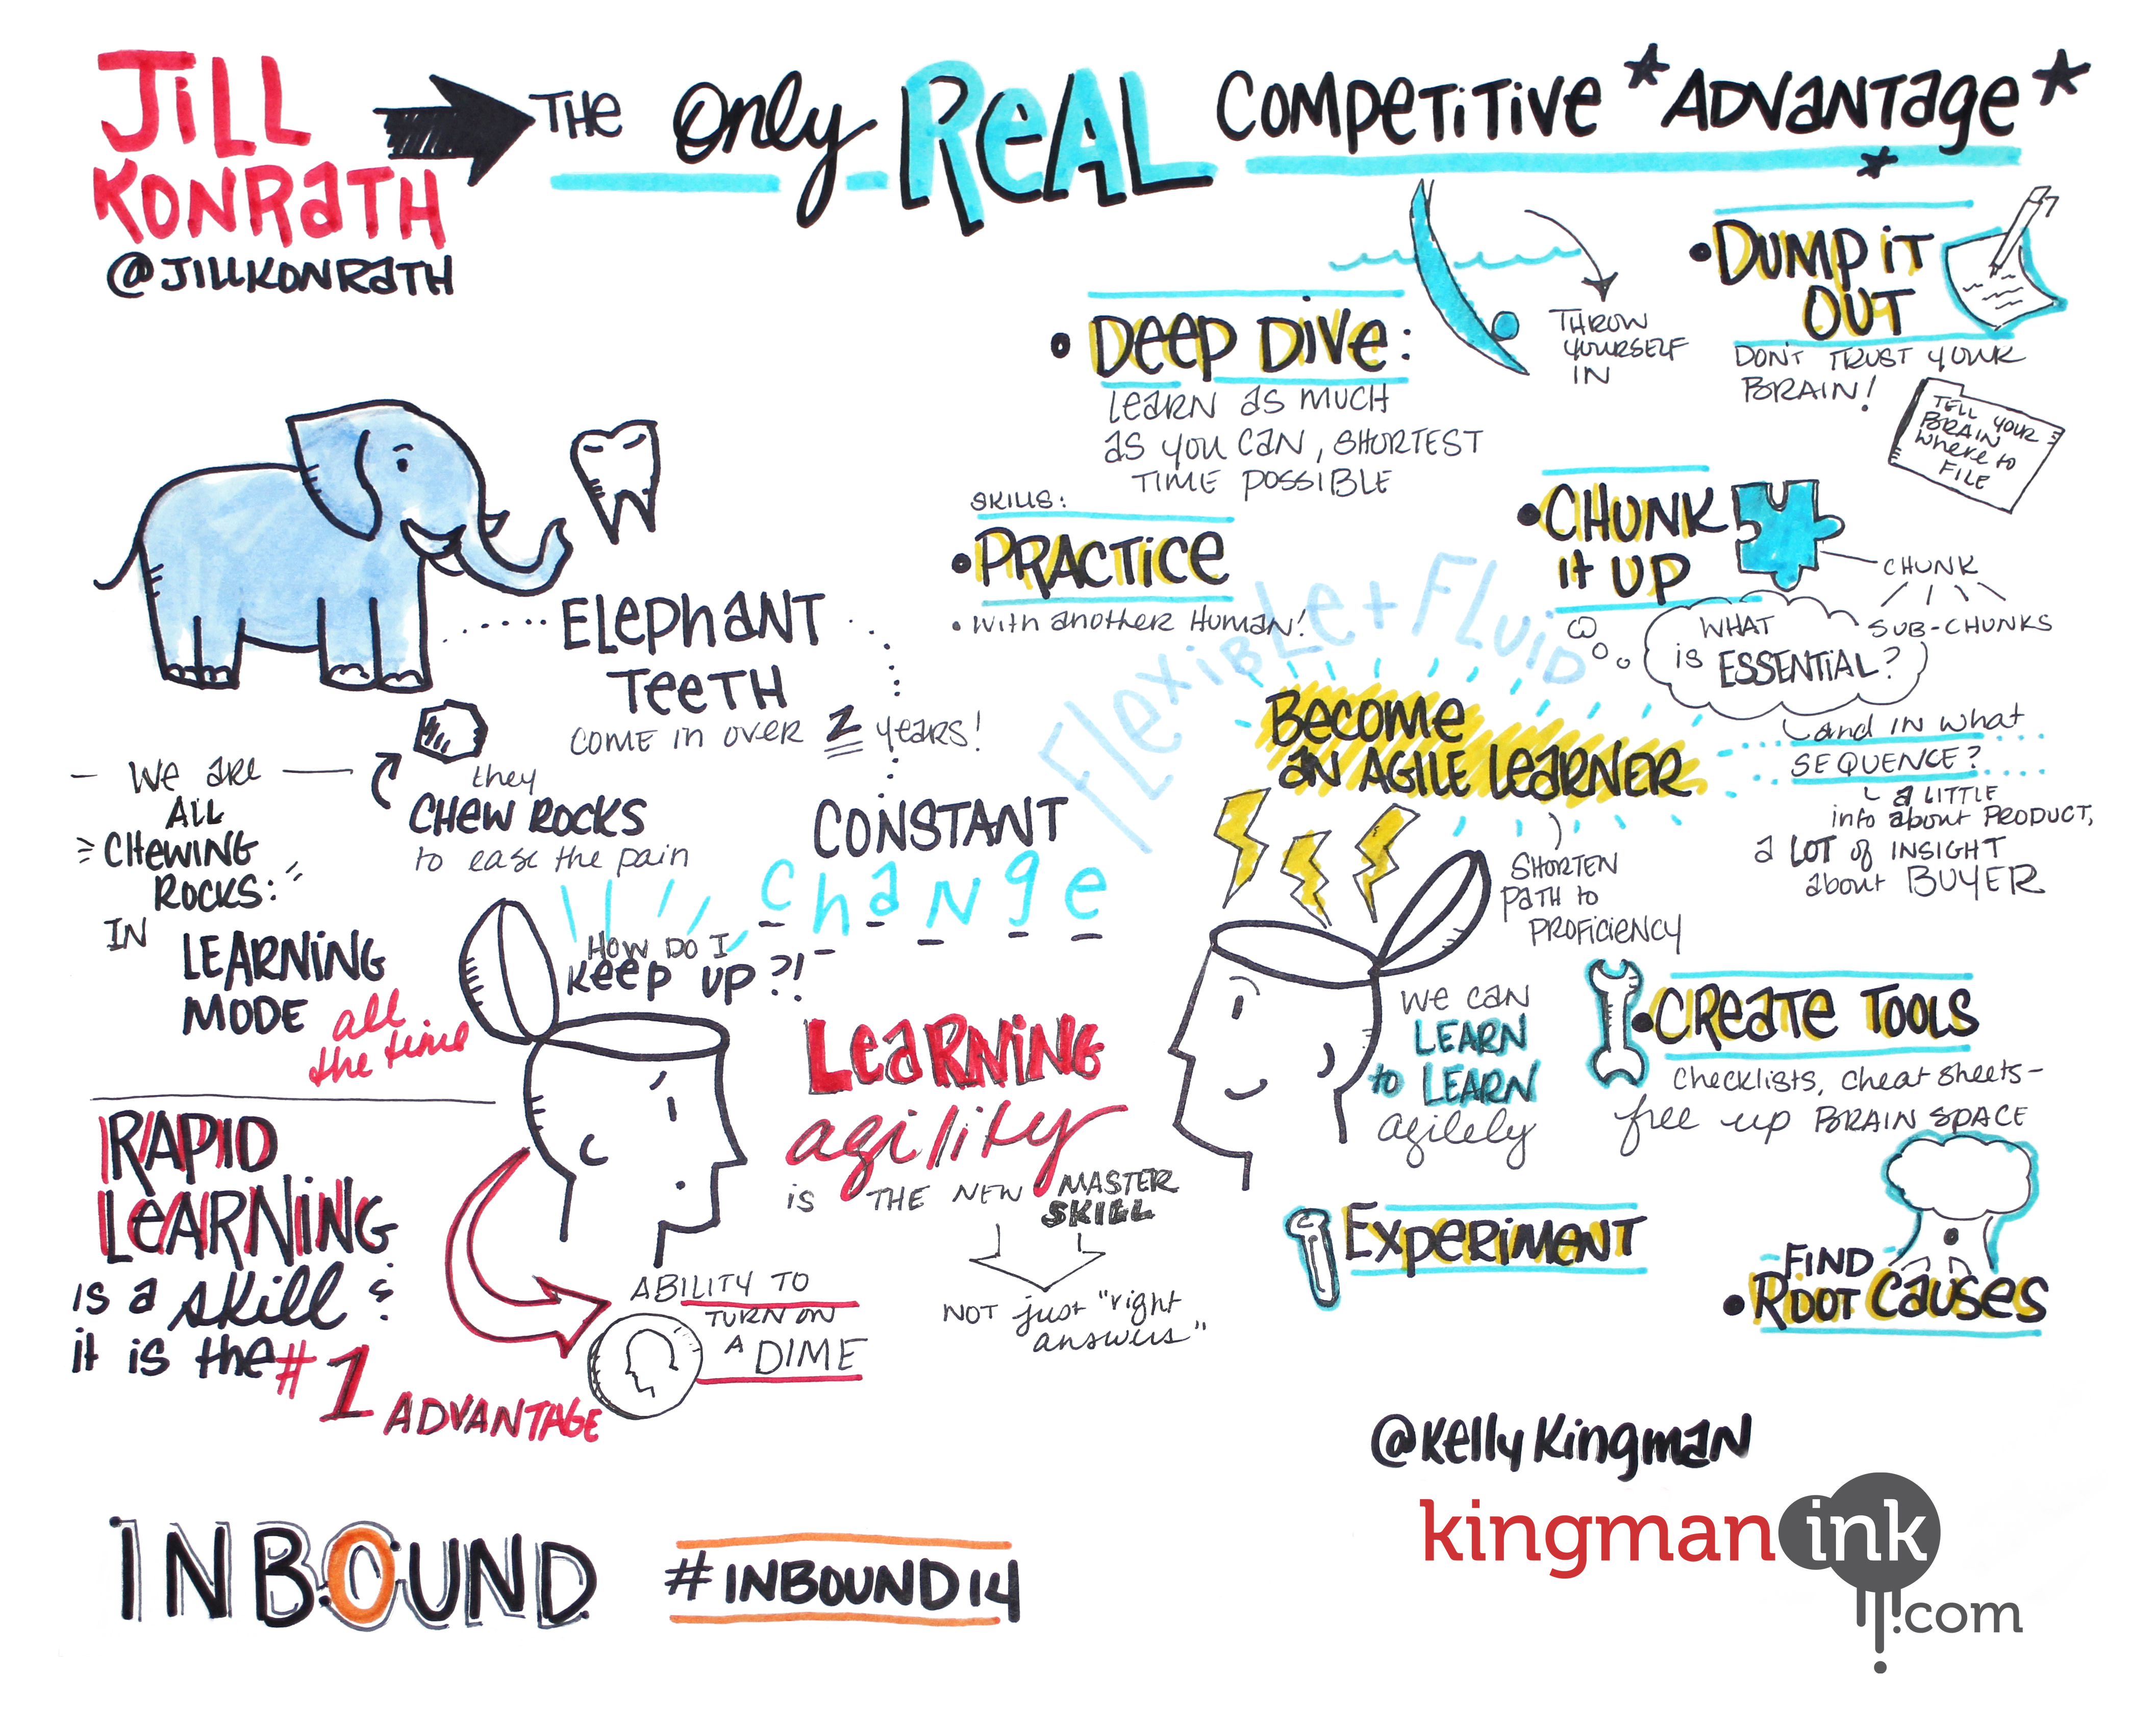 JiLL
KONRaTH
@JiLLKONRaTH
THe Only ReAL COMPeTiTive *ADVaNTage*
ELephaNT
TeeTH
COME iN OVER 2 years!
they
CHEW ROCKS
to ease the pain
- We are
ALL
CHeWING
ROCKS:
IN
LEARNiNG
MODE all
the time
RAPiD
LeARNiNG
is a skill &
it is the #1
ADVANTAGE
CONSTANT
change
HOW DO I
Keep up?!
LeaRNiNG
agility
is THE NEW MASTER
SKILL
NOT just "right
answers"
ABILITY TO
TURN ON
A DIME
• DeeP DiVe:
LeaRN as MUCH
as you CaN, SHORTEST
TIME POSSIBLE
THROW
YOURSELF
IN
SKiLLS:
• PRACTiCe
• With another Human!
FLexiBLe + FLuiD
• DUMP iT
OUT
DON'T TRUST YOUR
BRAIN!
TELL YOUR
BRAIN
Where to
FiLE
• CHUNK
it UP
CHUNK
SUB-CHUNKS
WHAT
is ESSENTiAL?
and IN what
SEQUENCE?
a LITTLE
info about PRODUCT,
a LOT of INSIGHT
about BUYER
Become
aN AGiLE LeaRNeR
SHORTEN
PaTH to
PROFiCieNCY
we can
LEARN
to LEARN
agilely
• CReaTe TOOLS
checklists, cheat sheets-
free up BRAIN SPACE
EXPeRiMeNT
FIND
• ROOT CauSeS
@Kelly KingmaN
kingman ink
.com
INBOUND
#INBOUND14